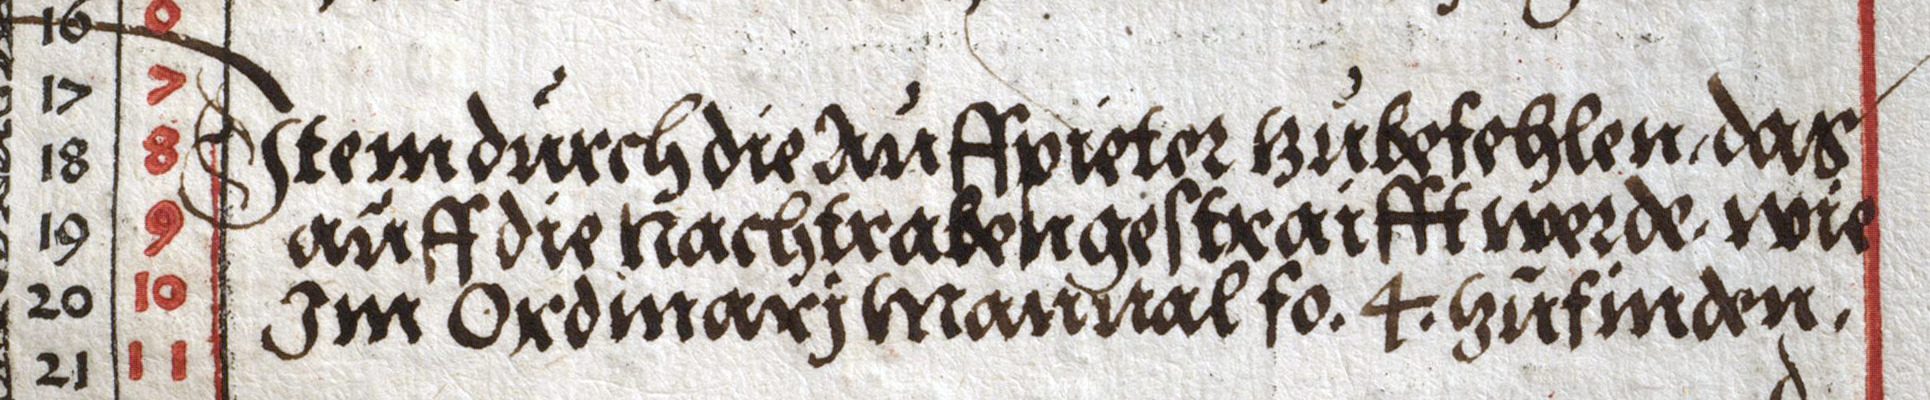 16 6
17 7
18 8 Item durch die Auffpieter zubefehlen, das
19 9 auff die nachtraben gestraifft werde, wie
20 10 Im Ordinarj Mannal fo. 4. zufinden.
21 11